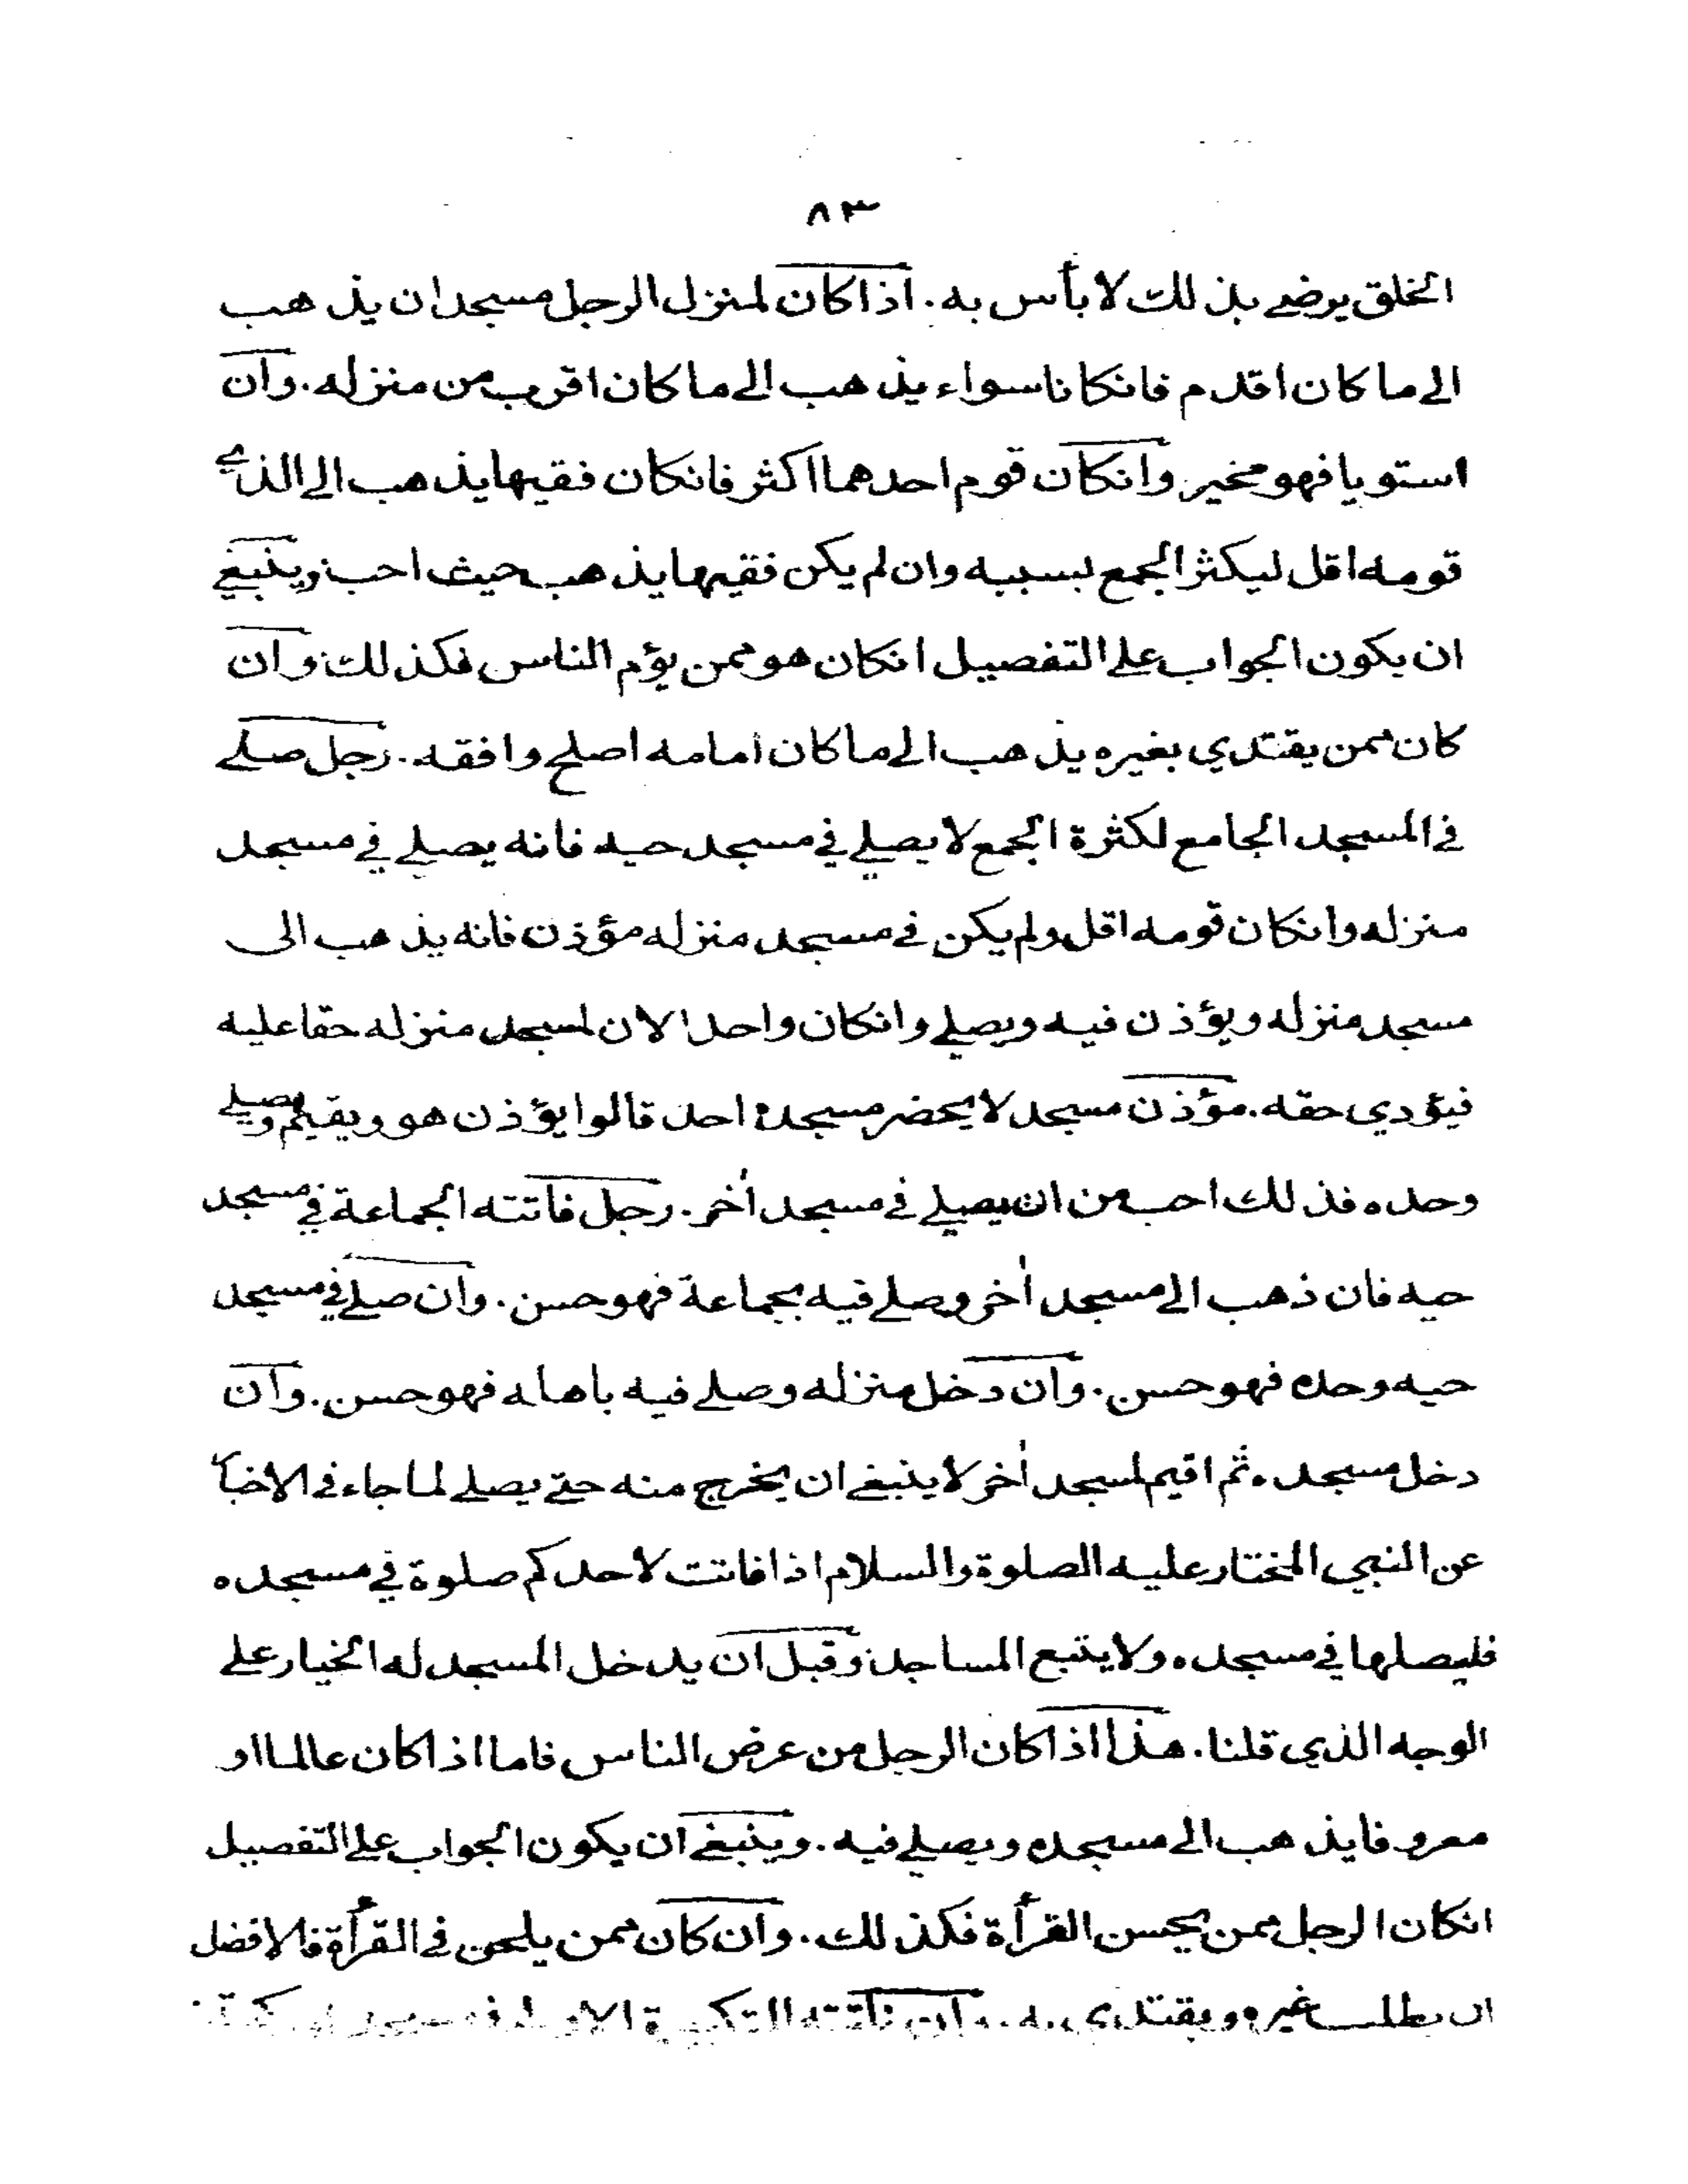 ٨٣
الخلق يرضى بذلك لا بأس به. اذا كان لمنزل الرجل مسجدان يذهب
الى ما كان اقدم فانكانا سواء يذهب الى ما كان اقرب من منزله. وان
استويا فهو مخير وانكان قوم احدهما اكثر فانكان فقيها يذهب الى الذى
قومه اقل ليكثر الجمع بسببه وان لم يكن فقيها يذهب حيث احب وينبغى
ان يكون الجواب على التفصيل انكان هو ممن يؤم الناس فكذلك وان
كان ممن يقتدي بغيره يذهب الى ما كان امامه اصلح وافقه. رجل صلى
فى المسجد الجامع لكثرة الجمع لا يصلي في مسجد حيه فانه يصلي في مسجد
منزله وانكان قومه اقل ولم يكن فى مسجد منزله مؤذن فانه يذهب الى
مسجد منزله ويؤذن فيه ويصلي وانكان واحدا لان لمسجد منزله حقا عليه
فيؤدي حقه. مؤذن مسجد لا يحضر مسجده احد قالوا يؤذن هو ويقيم ويصلي
وحده فذلك احب من ان يصلي فى مسجد اٰخر. رجل فاتته الجماعة في مسجد
حيه فان ذهب الى مسجد اٰخر وصلى فيه بجماعة فهو حسن. وان صلى في مسجد
حيه وحده فهو حسن. وان دخل منزله وصلى فيه باهله فهو حسن. وان
دخل مسجده ثم اقيم لمسجد اٰخر لا ينبغى ان يخرج منه حتى يصلى لما جاء فى الاخبا
عن النبي المختار عليه الصلوة والسلام اذا فاتت لاحدكم صلوة في مسجده
فليصلها في مسجده ولا يتبع المساجد وقبل ان يدخل المسجد له الخيار على
الوجه الذي قلنا. هذا اذا كان الرجل من عرض الناس فاما اذا كان عالما او
معروفا يذهب الى مسجده ويصلي فيه. وينبغى ان يكون الجواب على التفصيل
انكان الرجل ممن يحسن القرأة فكذلك. وان كان ممن يلحن فى القرأة فالافضل
ان يطلب غيره ويقتدي به. وان فاتته التكبيرة الاولى في مسجد